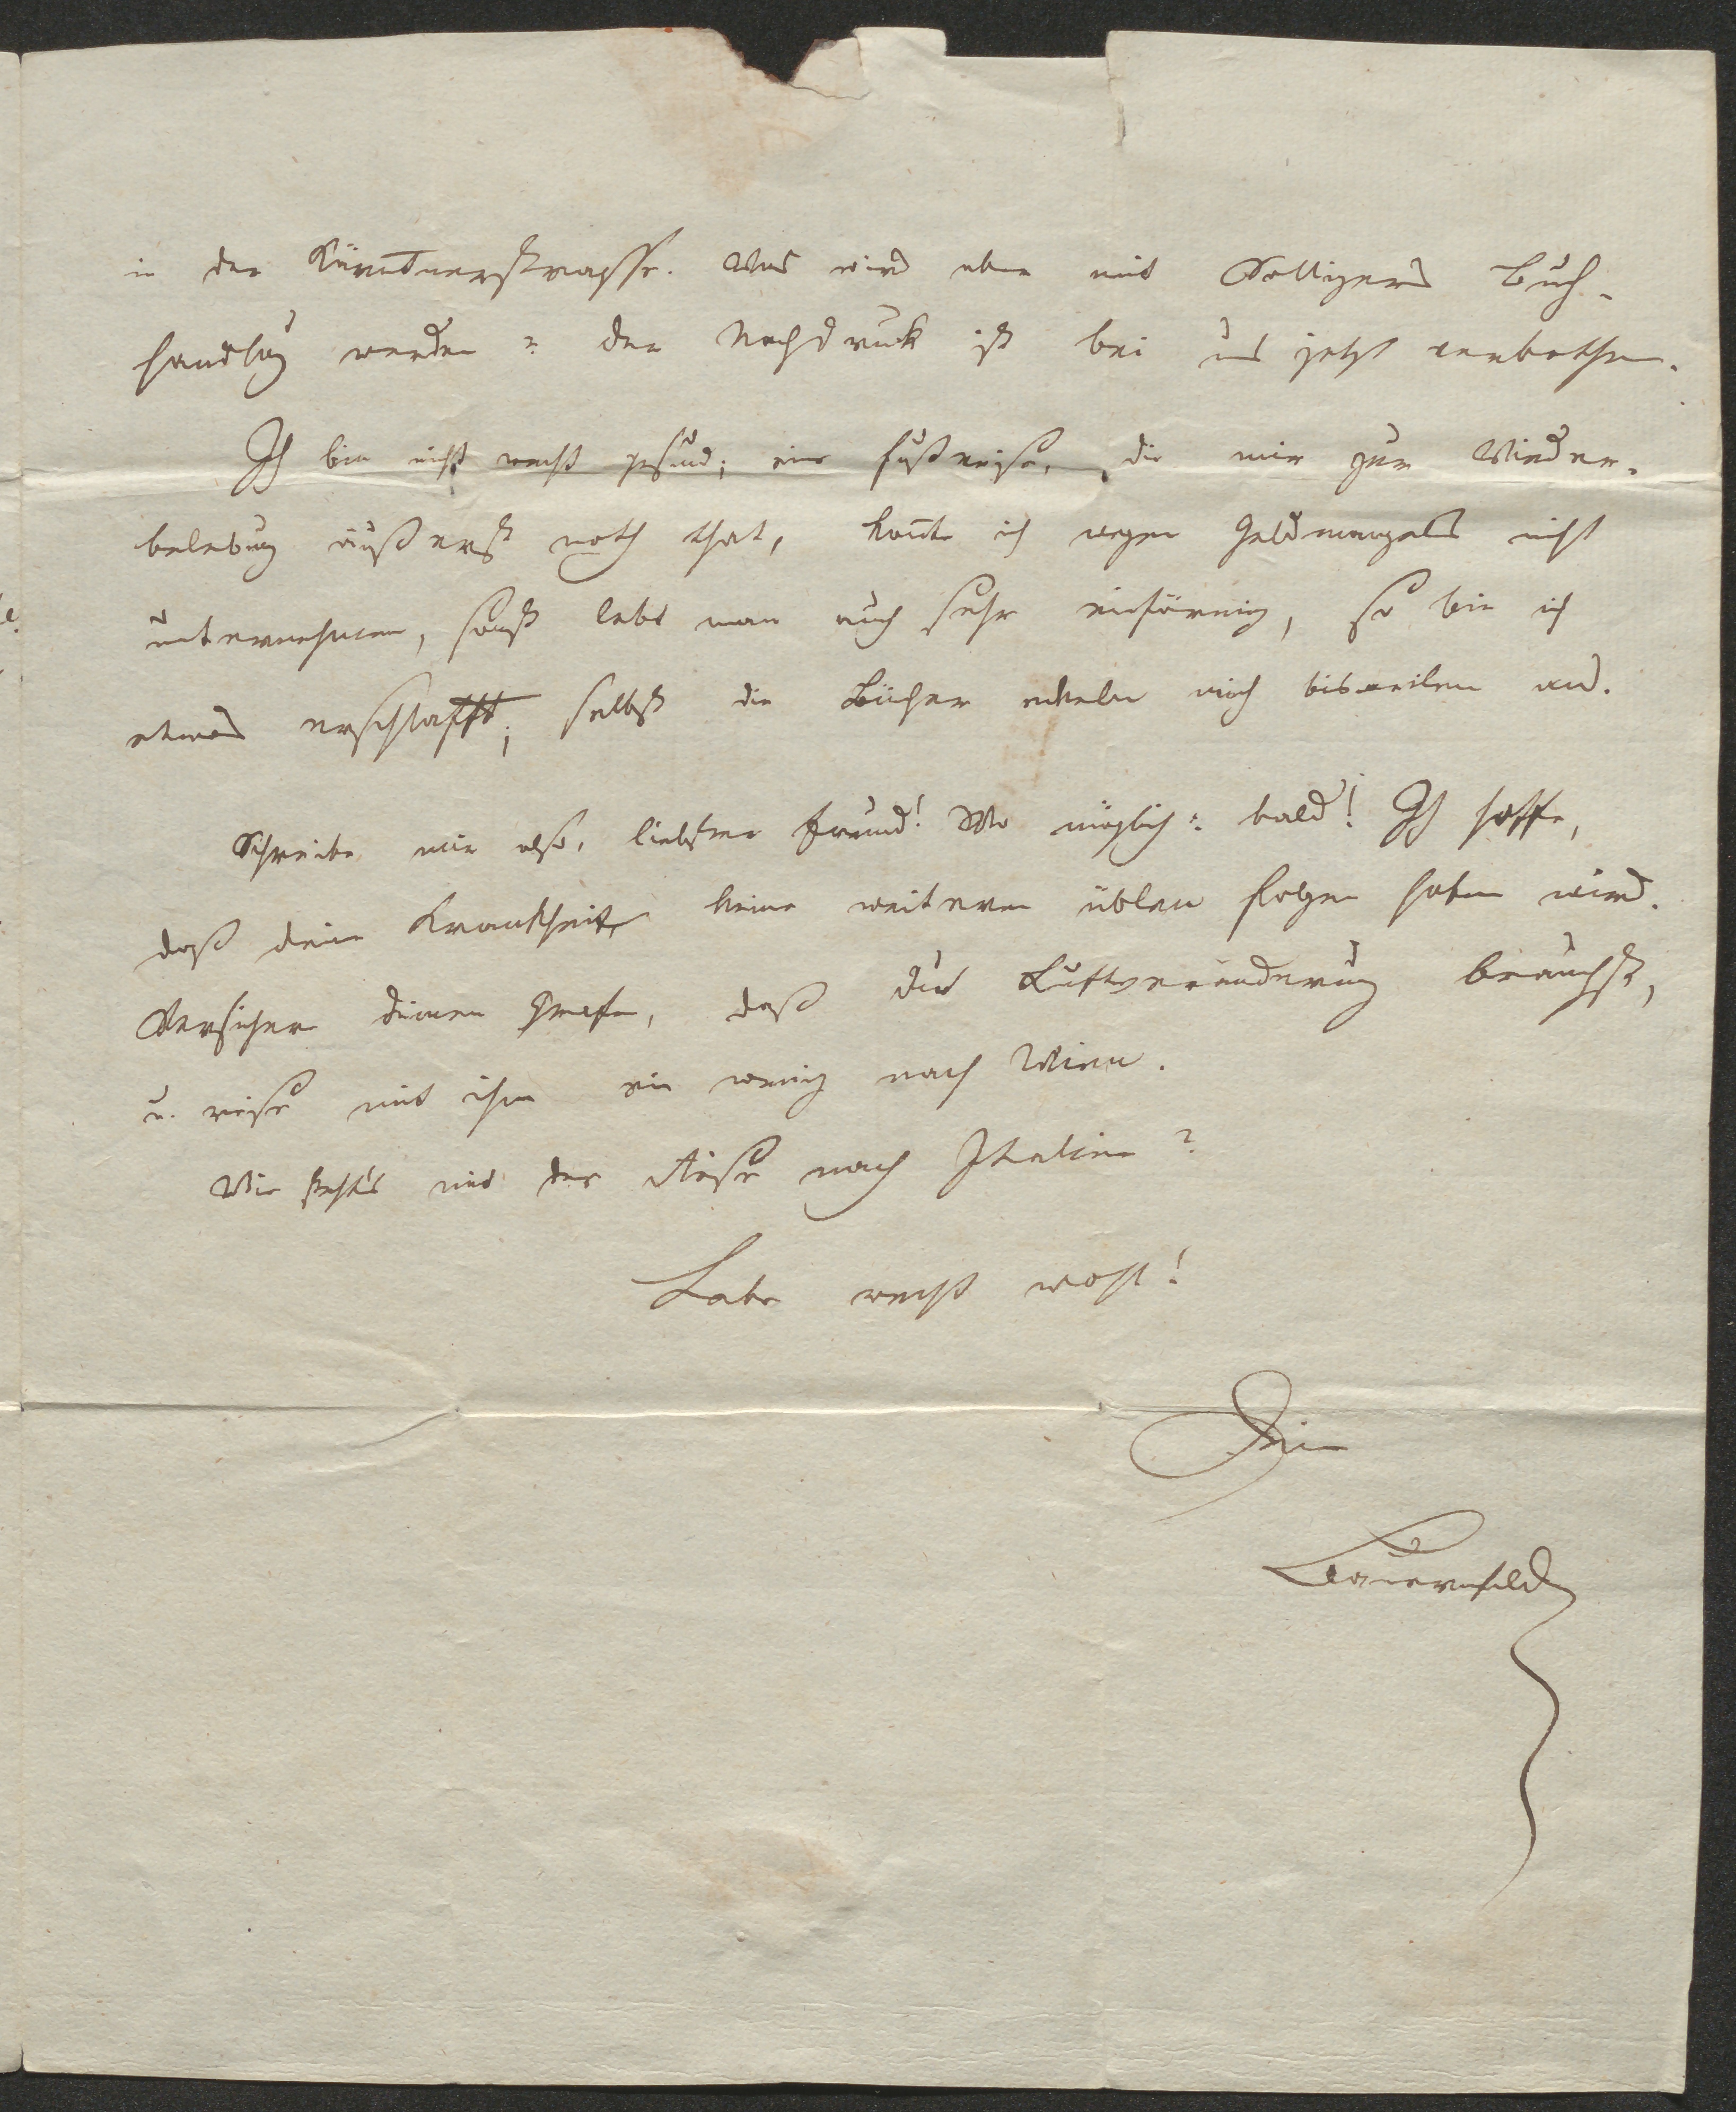 in der Kärntnerstrasse. Was wird aber mit Sollingers Buch-
handlug werden? der Nachdruck ist bei uns jetzt verbothen.
Ich bin nicht recht gesund; eine Fußreise, die mir zur Wieder-
belebung äußerst noth that, konnte ich wegen Geldmangels nicht
unternehmen, sonst lebt man auch sehr einförmig, so bin ich
etwas erschlafft; selbst die Bücher eckeln mich bisweilen an.
Schreibe mir also, liebster Freund! Wo möglich: bald! Ich hoffe,
daß deine Krankheit keine weiteren üblen Folgen haben wird.
Versichere deinen Grafen, daß du Luftveränderung brauchst,
u. reise mit ihm ein wenig nach Wien.
Wie steht's mit der Reise nach Italien?
Lebe recht wohl!
Dein
Bauernfeld